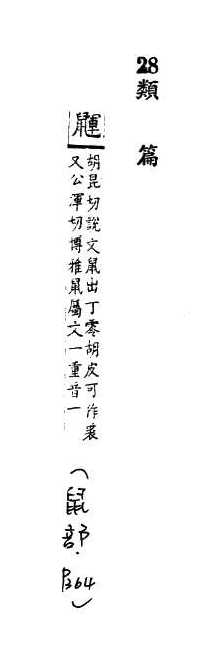 28類篇
鼲
胡昆切說文鼠出丁零胡皮可作裘
又公渾切博雅鼠屬文一重音一
（鼠部．P364）